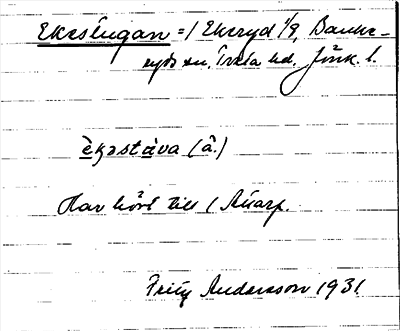 Ekestugan = 1 Ekeryd 1/9, Banke-
ryds sn, Tveta hd. Jönk. l.
èkəstàva (â.)
Har hört till 1 Åsarp.
Fritz Andersson 1931